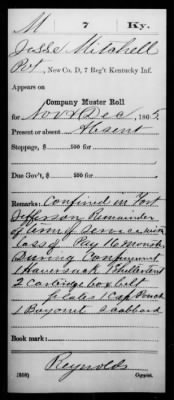 M 7 Ky.
Jesse Mitchell
Pvt, New Co. D, 7 Reg't Kentucky Inf.
Appears on
Company Muster Roll
for Nov & Dec, 1865.
Present or absent Absent
Stoppage, $ 100 for
Due Gov't, $ 100 for
Remarks: Confined in Fort
Jefferson Remainder
of term of service with
Loss of Pay 16 months
During Confinement
1 Haversack 1 Shelter tent
2 Cartridge box belt
plates 1 Cap Pouch
1 Bayonet Scabbard
Book mark:
Reynolds
(358) Copyist.